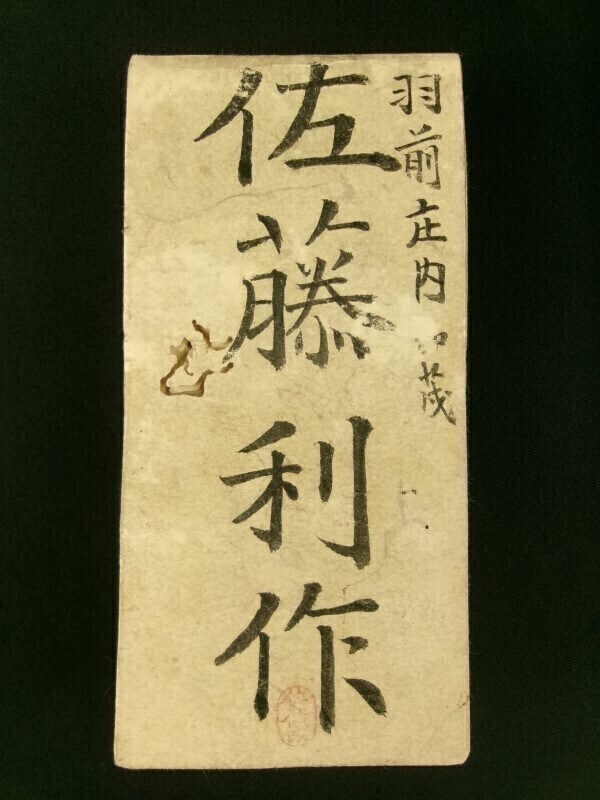 羽前庄内 茂
佐藤利作